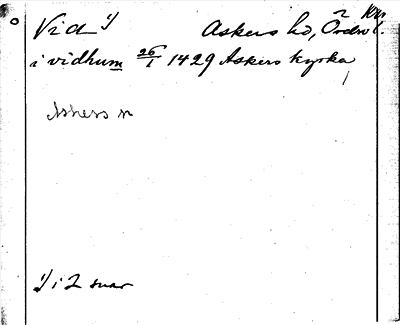 Vid 1) Askers hd, Örebro l.
i vidhum 26/1 1429 Askers kyrka
Askers sn
1) i 2 snar